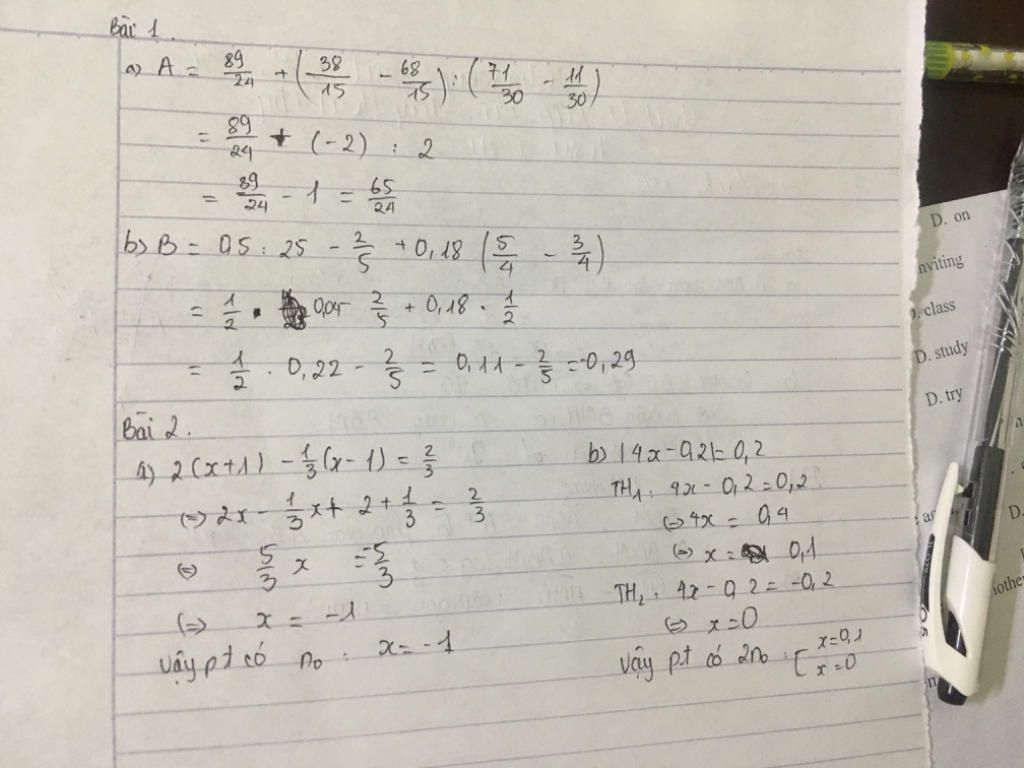 Bài 1.
a) A = 89/24 + (38/15 - 68/15) : (71/30 - 11/30)
= 89/24 + (-2) : 2
= 89/24 - 1 = 65/24
b) B = 0,5 : 25 - 2/5 + 0,18 (5/4 - 3/4)
= 1/2 . 0,04 - 2/5 + 0,18 . 1/2
= 1/2 . 0,22 - 2/5 = 0,11 - 2/5 = -0,29
Bài 2.
a) 2(x+1) - 1/3(x-1) = 2/3
(=) 2x - 1/3x + 2 + 1/3 = 2/3
(=) 5/3 x = -5/3
(=) x = -1
Vậy pt có no : x = -1
b) |4x - 0,2| = 0,2
TH1 : 4x - 0,2 = 0,2
(=) 4x = 0,4
(=) x = 0,1
TH2 : 4x - 0,2 = -0,2
(=) x = 0
Vậy pt có 2no : [ x = 0,1
x = 0
D. on
nviting
class
D. study
D. try
D.